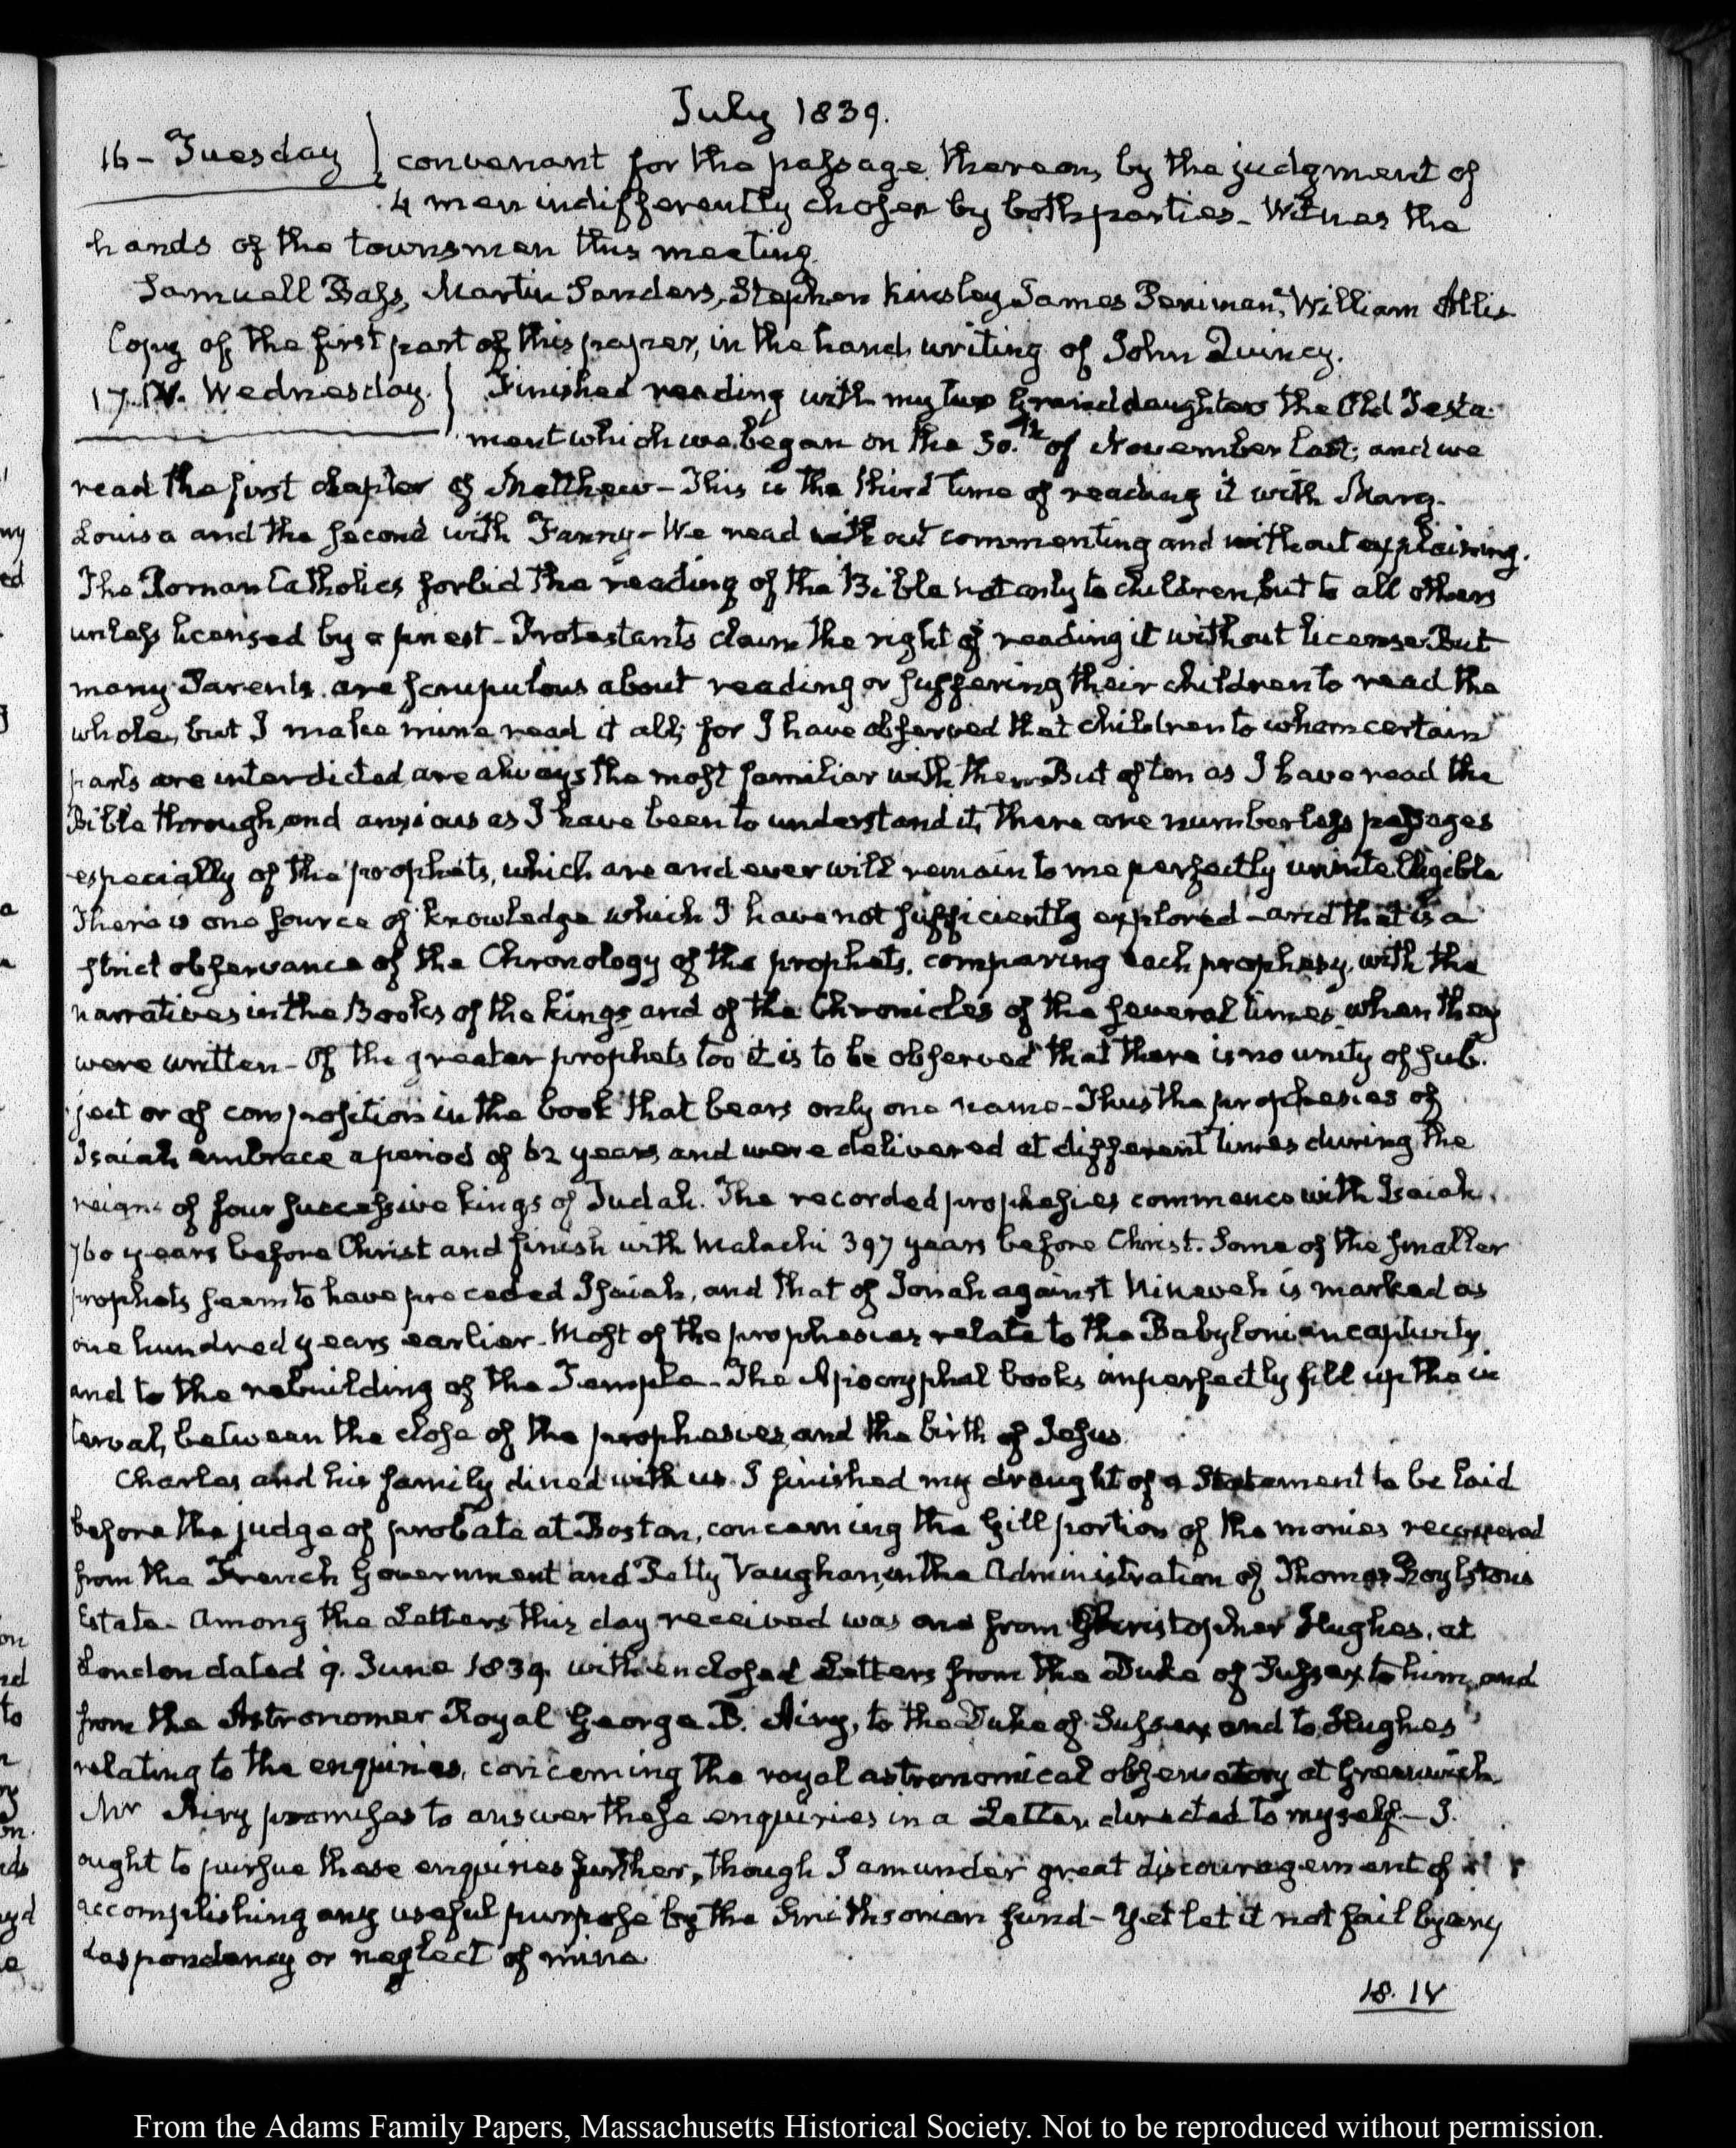 July 1839.
16 - Tuesday } convenant for the passage thereon, by the judgment of
4 men indifferently chosen by both parties - Witness the
hands of the townsmen this meeting.
Samuell Bass, Martin Sanders, Stephen Kinsley James Peniman, William Allis
Copy of the first part of this paper, in the hand writing of John Quincy.
17. IV. Wednesday. } Finished reading with my two Grand daughters the Old Testa-
ment which we began on the 30.th of November last; and we
read the first chapter of Matthew - This is the third time of reading it with Mary-
Louisa and the second with Fanny - We read without commenting and without explaining.
The Roman Catholics forbid the reading of the Bible not only to children, but to all others
unless licensed by a priest - Protestants claim the right of reading it without license But
many Parents are scrupulous about reading or suffering their children to read the
whole, but I make mine read it all; for I have observed that children to whom certain
parts are interdicted are always the most familiar with them But often as I have read the
Bible through, and anxious as I have been to understand it, there are numberless passages
especially of the prophets, which are and ever will remain to me perfectly unintelligible
There is one source of knowledge which I have not sufficiently explored - and that is a
strict observance of the Chronology of the prophets, comparing each prophesy with the
narratives in the Books of the kings and of the Chronicles of the several times when they
were written - Of the greater prophets too it is to be observed that there is no unity of sub-
ject or of composition in the book that bears only one name - Thus the prophesies of
Isaiah embrace a period of 62 years and were delivered at different times during the
reigns of four successive kings of Judah. The recorded prophesies commence with Isaiah
760 years before Christ and finish with Malachi 397 years before Christ. Some of the smaller
prophets seem to have preceded Isaiah, and that of Jonah against Nineveh is marked as
one hundred years earlier. Most of the prophesies relate to the Babylonian captivity
and to the rebuilding of the Temple - The Apocryphal books imperfectly fill up the in
terval, between the close of the prophesies and the birth of Jesus
Charles and his family dined with us. I finished my draught of a Statement to be laid
before the judge of probate at Boston, concerning the Gill portion of the monies recovered
from the French Government and Petty Vaughan, in the Administration of Thomas Boylston's
Estate. Among the Letters this day received was one from Christopher Hughes, at
London dated 9. June 1839. with enclosed Letters from the Duke of Sussex to him, and
from the Astronomer Royal George B. Airy, to the Duke of Sussex and to Hughes
relating to the enquiries, concerning the royal astronomical observatory at Greenwich
Mr Airy promises to answer these enquiries in a Letter directed to myself - I
ought to pursue these enquiries further, though I am under great discouragement of
accomplishing any useful purpose by the Smithsonian fund - Yet let it not fail by any
despondency or neglect of mine
18. IV
From the Adams Family Papers, Massachusetts Historical Society. Not to be reproduced without permission.